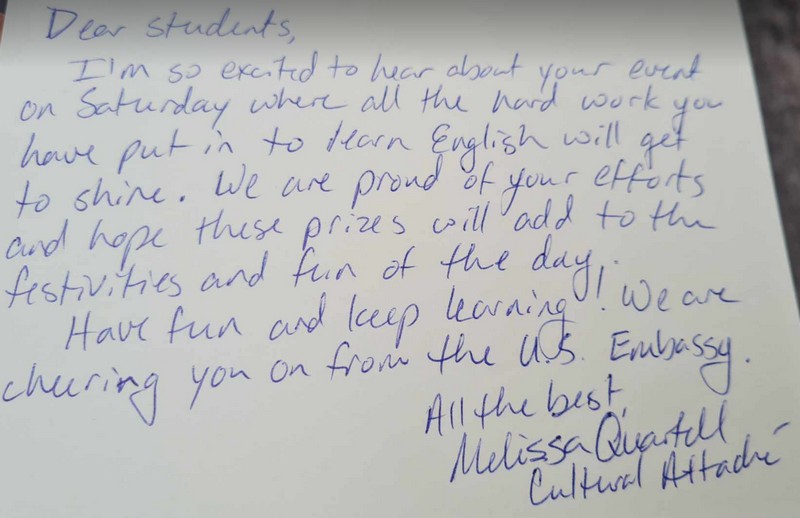 Dear students,
I'm so excited to hear about your event
on Saturday where all the hard work you
have put in to learn English will get
to shine. We are proud of your efforts
and hope these prizes will add to the
festivities and fun of the day.
Have fun and keep learning! We are
cheering you on from the U.S. Embassy.
All the best,
Melissa Quartell
Cultural Attaché